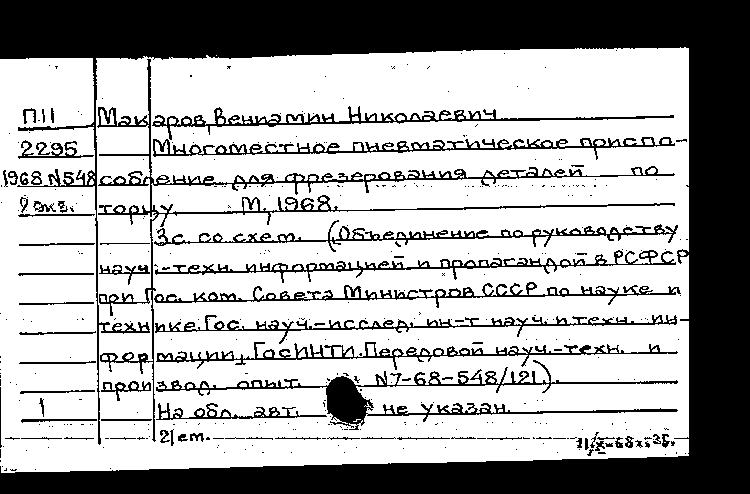 П.11 Макаров, Вениамин Николаевич
2295 Многоместное пневматическое приспо-
1968 N548 собление для фрезерования деталей по
2 экз. торцу. М., 1968.
3 с. со схем. (Объединение по руководству
науч.-техн. информацией и пропагандой в РСФСР
при Гос. ком. Совета Министров СССР по науке и
технике. Гос. науч.-исслед. ин-т науч. и техн. ин-
формации. ГосИНТИ. Передовой науч.-техн. и
производ. опыт. N7-68-548/121.).
1 На обл. авт. не указан.
2/ет.